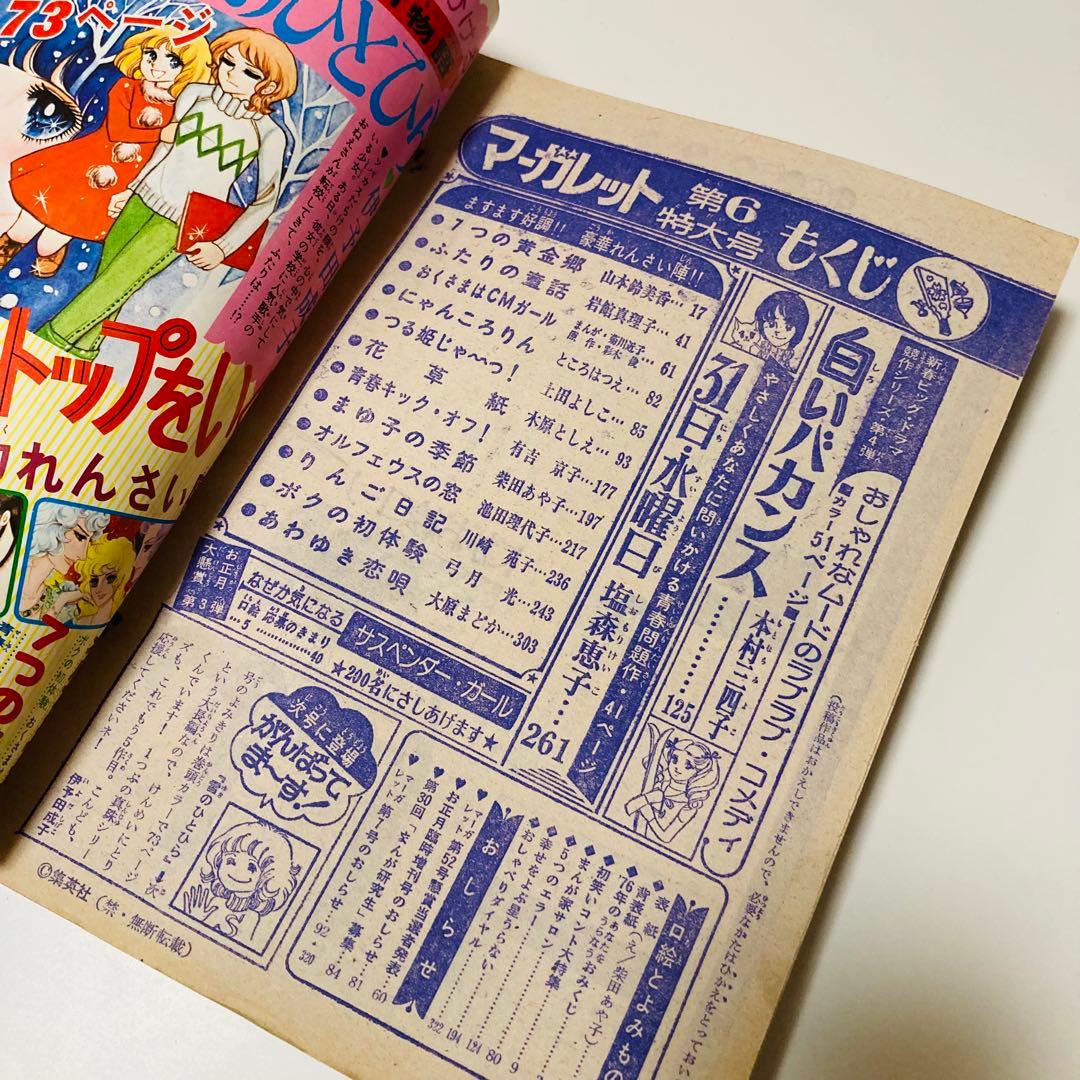 73ページ
のひとひら
トップをい
れんさい
7つの
マーガレット 第6特大号 もくじ
ますます好調!! 豪華れんさい陣!!
7つの黄金郷 山本鈴美香…17
ふたりの童話 岩館真理子…41
おくさまはCMガール まんが・菊川近子 原作・彩木俊…61
にゃんころりん ところはつえ…82
つる姫じゃ〜っ! 土田よしこ…85
花草紙 木原としえ…93
青春キック・オフ! 有吉京子…177
まゆ子の季節 柴田あや子…197
オルフェウスの窓 池田理代子…217
りんご日記 川崎苑子…236
ボクの初体験 弓月光…243
あわゆき恋唄 大原まどか…303
新春ビッグ・ドラマ競作シリーズ・第4弾
おしゃれなムードのラブラブ・コメディ
■カラー51ページ■
白いバカンス 本村三四子…125
やさしくあなたに問いかける青春問題作・41ページ
31日・水曜日 塩森恵子…261
お正月大懸賞第3弾
なぜか気になる サスペンダー・ガール
口絵…5 応募のきまり…40
★200名にさしあげます★
次号に登場
がんばってま〜す!
号のよみきりは巻頭カラーで73ページという大長編なので、けんめいにとりくんでいます! 1つぶの真珠シリーズも、これでもう5作目。こんども応援してくださいネ!
『雪のひとひら』
伊予田成子
口絵とよみもの
◆表紙
◆背表紙(え/柴田あや子)
◆'76年のあなたをうらなうおみくじ
◆初笑いコント大特集
◆まんが家サロン
◆5つのエラー
◆幸せをよぶ星うらない
◆おしゃべりダイヤル
2 3 9 80 124 194 322
おしらせ
♥マーガレット第52号懸賞当選者発表…60
♥お正月臨時増刊号のおしらせ…81
♥第30回「まんが研究生」募集…84
♥マーガレット第7号のおしらせ…92・320
(投稿作品はおかえしできませんので、必要なかたはひかえをとっておい
©集英社(禁・無断転載)